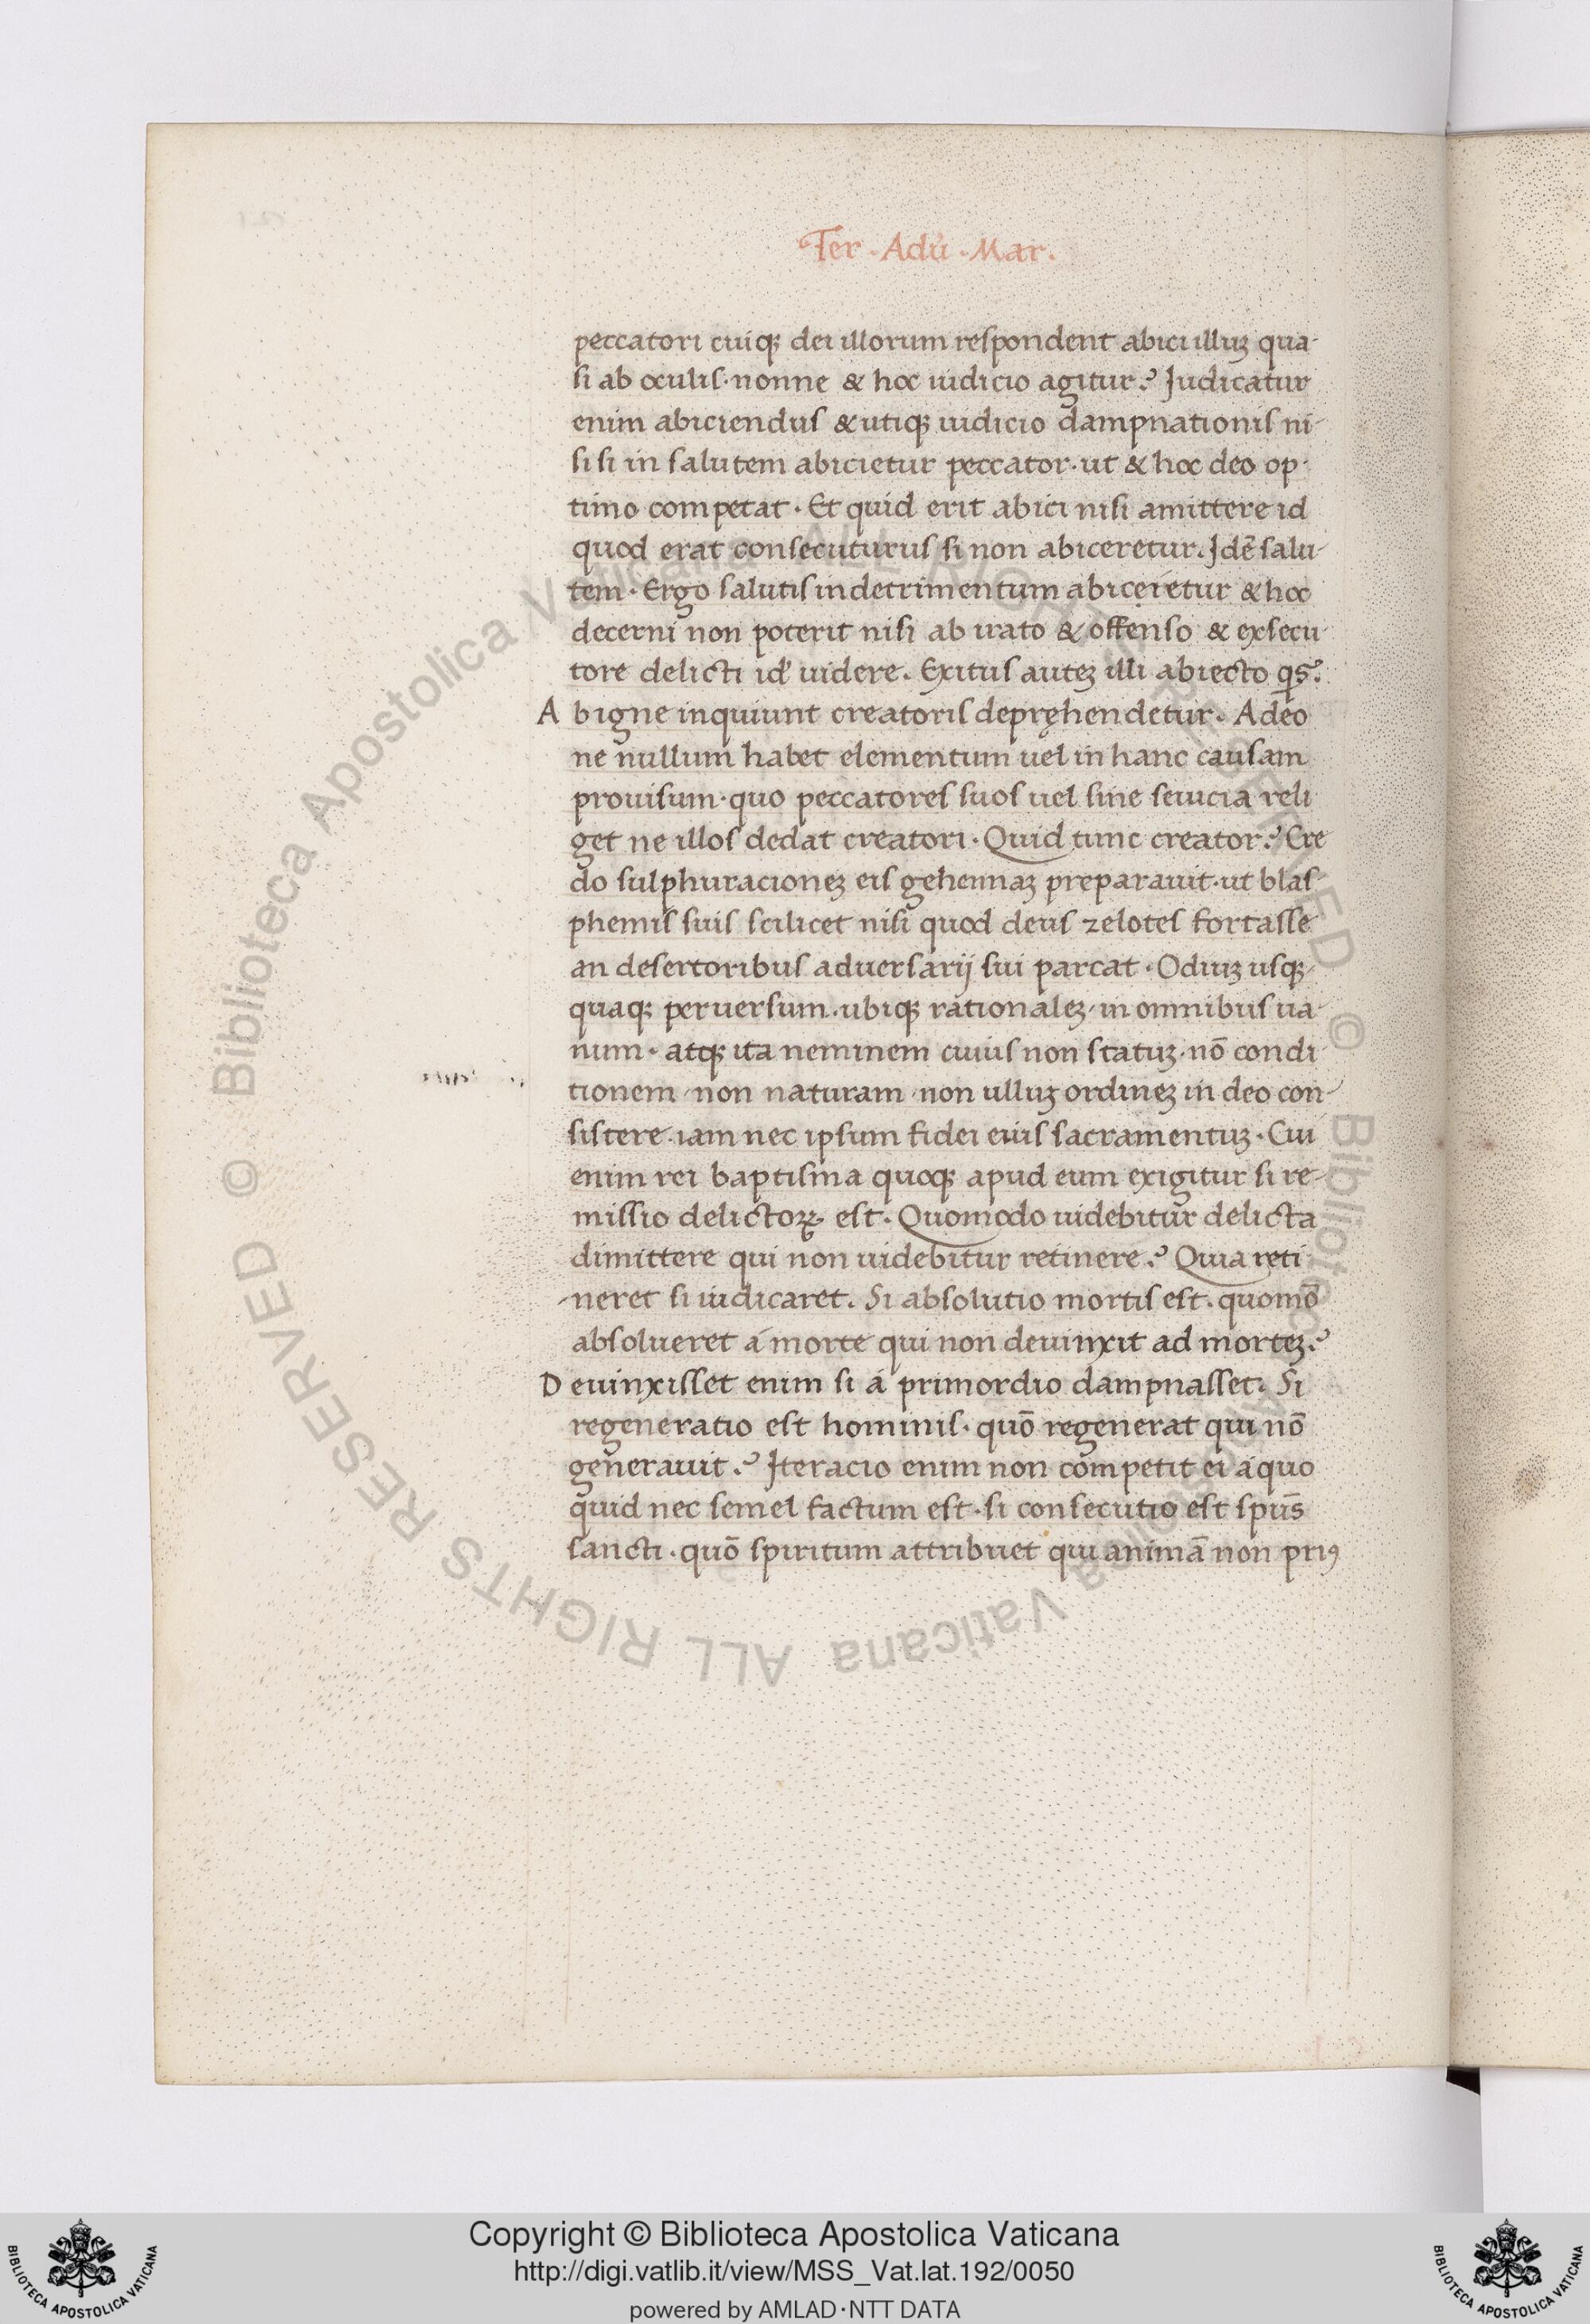 Ter · Adū · Mar.
peccatori cuiqꝫ dei illorum respondent abici illuꝫ qua-
si ab oculis· nonne & hoc iudicio agitur? Judicatur
enim abiciendus & utiqꝫ iudicio dampnationis ni-
si si in salutem abicietur peccator· ut & hoc deo op-
timo competat · Et quid erit abici nisi amittere id
quod erat consecuturus si non abiceretur. Jdē salu-
tem · Ergo salutis in detrimentum abiceretur & hoc
decerni non poterit nisi ab irato & offenso & exsecu-
tore delicti uidere. Exitus auteꝫ illi abiecto
A b igne inquiunt creatoris depręhendetur. Adeo
ne nullum habet elementum uel in hanc causam
prouisum· quo peccatores suos uel sine seuicia reli
get ne illos dedat creatori · Quid tunc creator? Cre
do sulphuracioneꝫ eis gehennaꝫ preparauit· ut blas-
phemis suis scilicet nisi quod deus zelotes fortasse
an desertoribus aduersarij sui parcat · Odiuꝫ usqꝫ-
quaqꝫ peruersum· ubiqꝫ rationaleꝫ· in omnibus ua-
num · atqꝫ ita neminem cuius non statuꝫ· nō condi
tionem · non naturam · non ulluꝫ ordineꝫ in deo con-
sistere· iam nec ipsum fidei eius sacramentuꝫ · Cui
enim rei baptisma quoqꝫ apud eum exigitur si re-
missio delictoꝝ est · Quomodo uidebitur delicta
dimittere qui non uidebitur retinere? Quia reti
-neret si iudicaret. Si absolutio mortis est· quomō
absolueret á morte qui non deuinxit ad morteꝫ?
D euinxisset enim si á primordio dampnasset. Si
regeneratio est hominis· quō regenerat qui nō
generauit? Jteracio enim non competit ei áquo
quid nec semel factum est · si consecutio est spūs
sancti · quō spiritum attribuet qui animā non priꝰ
© Biblioteca Apostolica Vaticana ALL RIGHTS RESERVED © Biblioteca Apostolica Vaticana ALL RIGHTS RESERVED
Copyright © Biblioteca Apostolica Vaticana
http://digi.vatlib.it/view/MSS_Vat.lat.192/0050
powered by AMLAD·NTT DATA
BIBLIOTECA APOSTOLICA VATICANA
BIBLIOTECA APOSTOLICA VATICANA